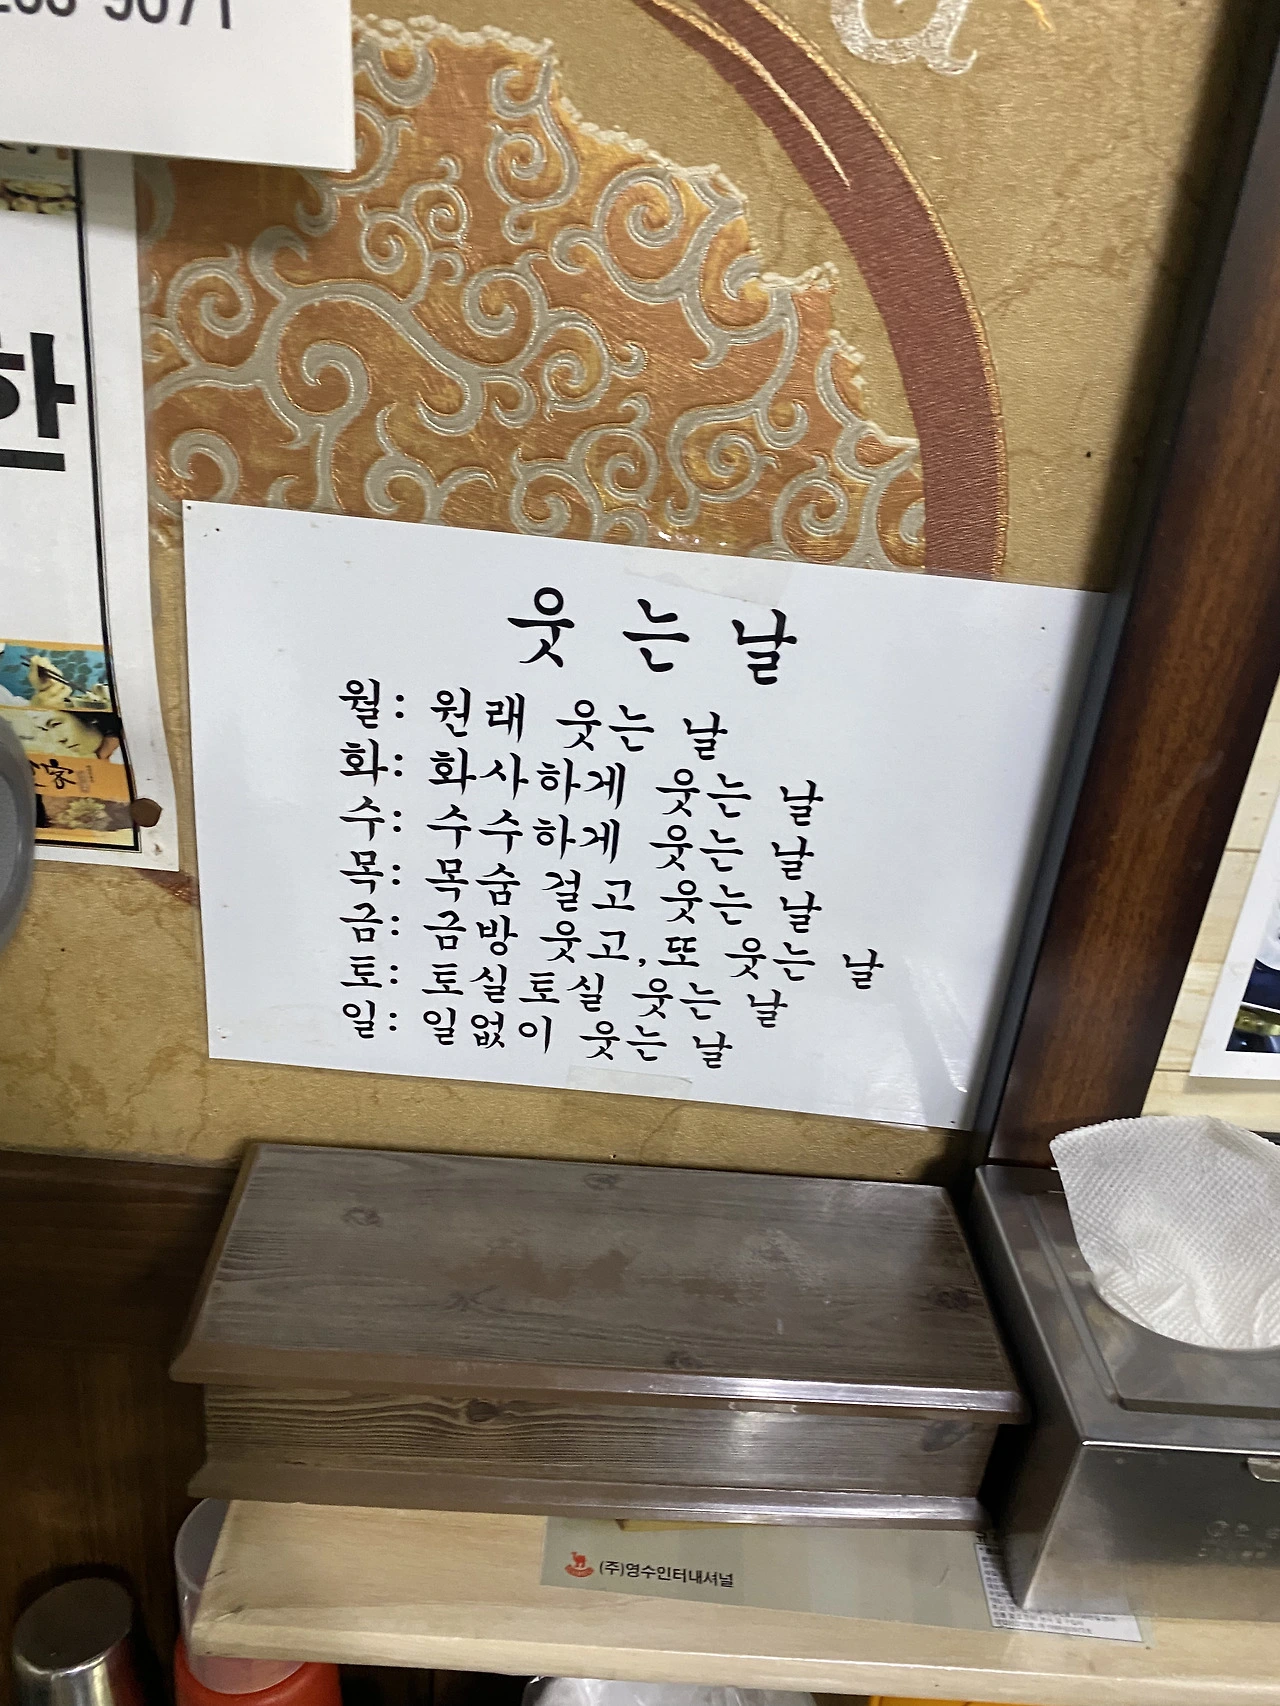 한
웃는날
월: 원래 웃는 날
화: 화사하게 웃는 날
수: 수수하게 웃는 날
목: 목숨 걸고 웃는 날
금: 금방 웃고, 또 웃는 날
토: 토실토실 웃는 날
일: 일없이 웃는 날
(주)영수인터내셔널